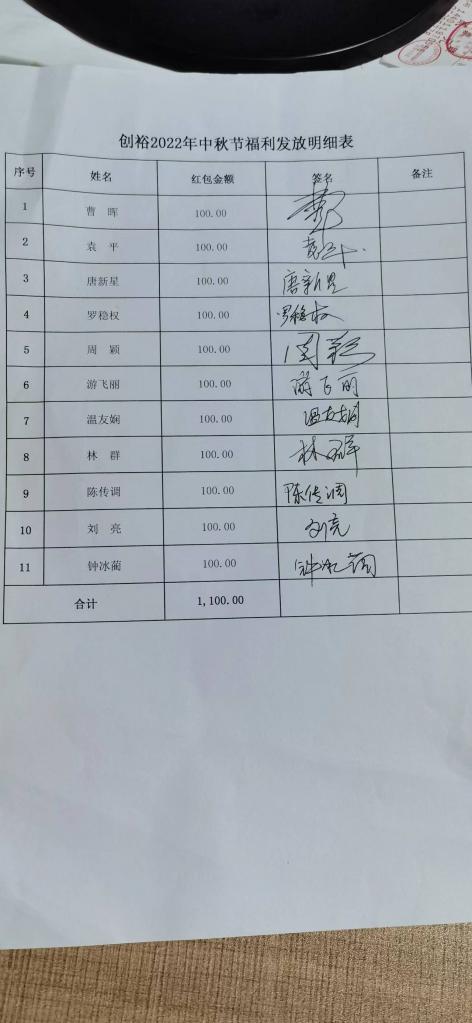 创裕2022年中秋节福利发放明细表
序号 姓名 红包金额 签名 备注
1 曹 晖 100.00
2 袁 平 100.00 袁平
3 唐新星 100.00 唐新星
4 罗稳权 100.00 罗稳权
5 周 颖 100.00 周颖
6 游飞丽 100.00 游飞丽
7 温友娴 100.00 温友娴
8 林 群 100.00 林群
9 陈传调 100.00 陈传调
10 刘 亮 100.00 刘亮
11 钟冰蔺 100.00
合计 1,100.00